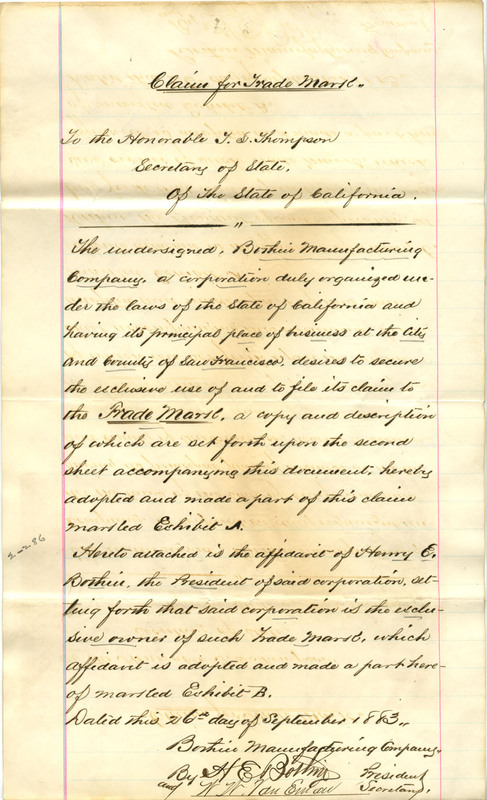 Claim for Trade Mark.
To the Honorable T. L. Thompson
Secretary of State,
Of The State of California.
The undersigned, Bothin Manufacturing
Company, a corporation duly organized un-
der the laws of the State of California and
having its principal place of business at the City
and County of San Francisco, desires to secure
the exclusive use of and to file its claim to
the Trade Mark, a copy and description
of which are set forth upon the second
sheet accompanying this document, hereby
adopted and made a part of this claim
marked Exhibit A.
Hereto attached is the affidavit of Henry E.
Bothin, the President of said corporation, set-
ting forth that said corporation is the exclu-
sive owner of such Trade Mark, which
affidavit is adopted and made a part here-
of marked Exhibit B.
Dated this 26th day of September 1883.
Bothin Manufacturing Company.
By H E Bothin President
and W. W. Van Secretary.